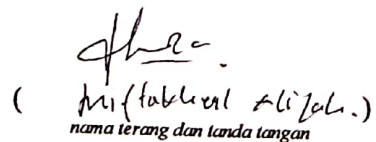 ( Miftakhul Alizah.)
nama terang dan tanda tangan